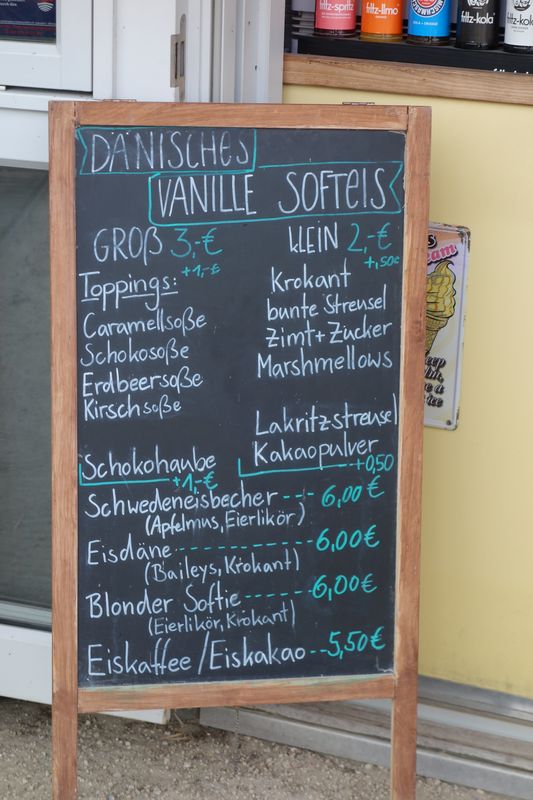 fritz-spritz
fritz-limo
MISCHMASCH
fritz-kola
fritz-kola
DÄNISCHES
VANILLE SOFTEIS
GROß 3,-€
+1,-€
KLEIN 2,-€
+,50€
Toppings:
Caramellsoße
Schokosoße
Erdbeersoße
Kirschsoße
Krokant
bunte Streusel
Zimt+Zucker
Marshmellows
Lakritz-streusel
Kakaopulver
+0,50
Schokohaube
+1,-€
Schwedeneisbecher --- 6,00€
(Apfelmus, Eierlikör)
Eisdäne ------------ 6,00€
(Baileys, Krokant)
Blonder Softie ------ 6,00€
(Eierlikör, Krokant)
Eiskaffee/Eiskakao -- 5,50€